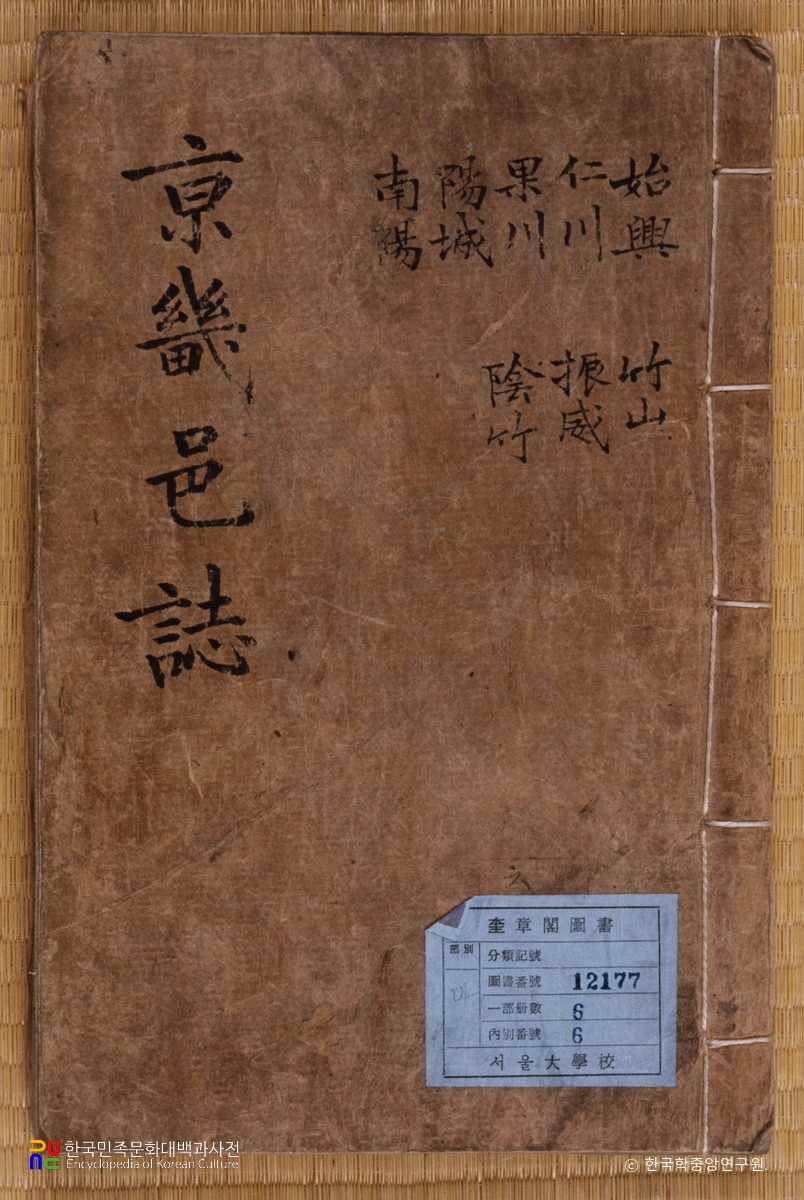 京畿邑誌
始興
仁川
果川
陽城
南陽
竹山
振威
陰竹
奎章閣圖書
部別
分類記號
圖書番號 12177
一部册數 6
內別番號 6
서울大學校
한국민족문화대백과사전
Encyclopedia of Korean Culture
© 한국학중앙연구원